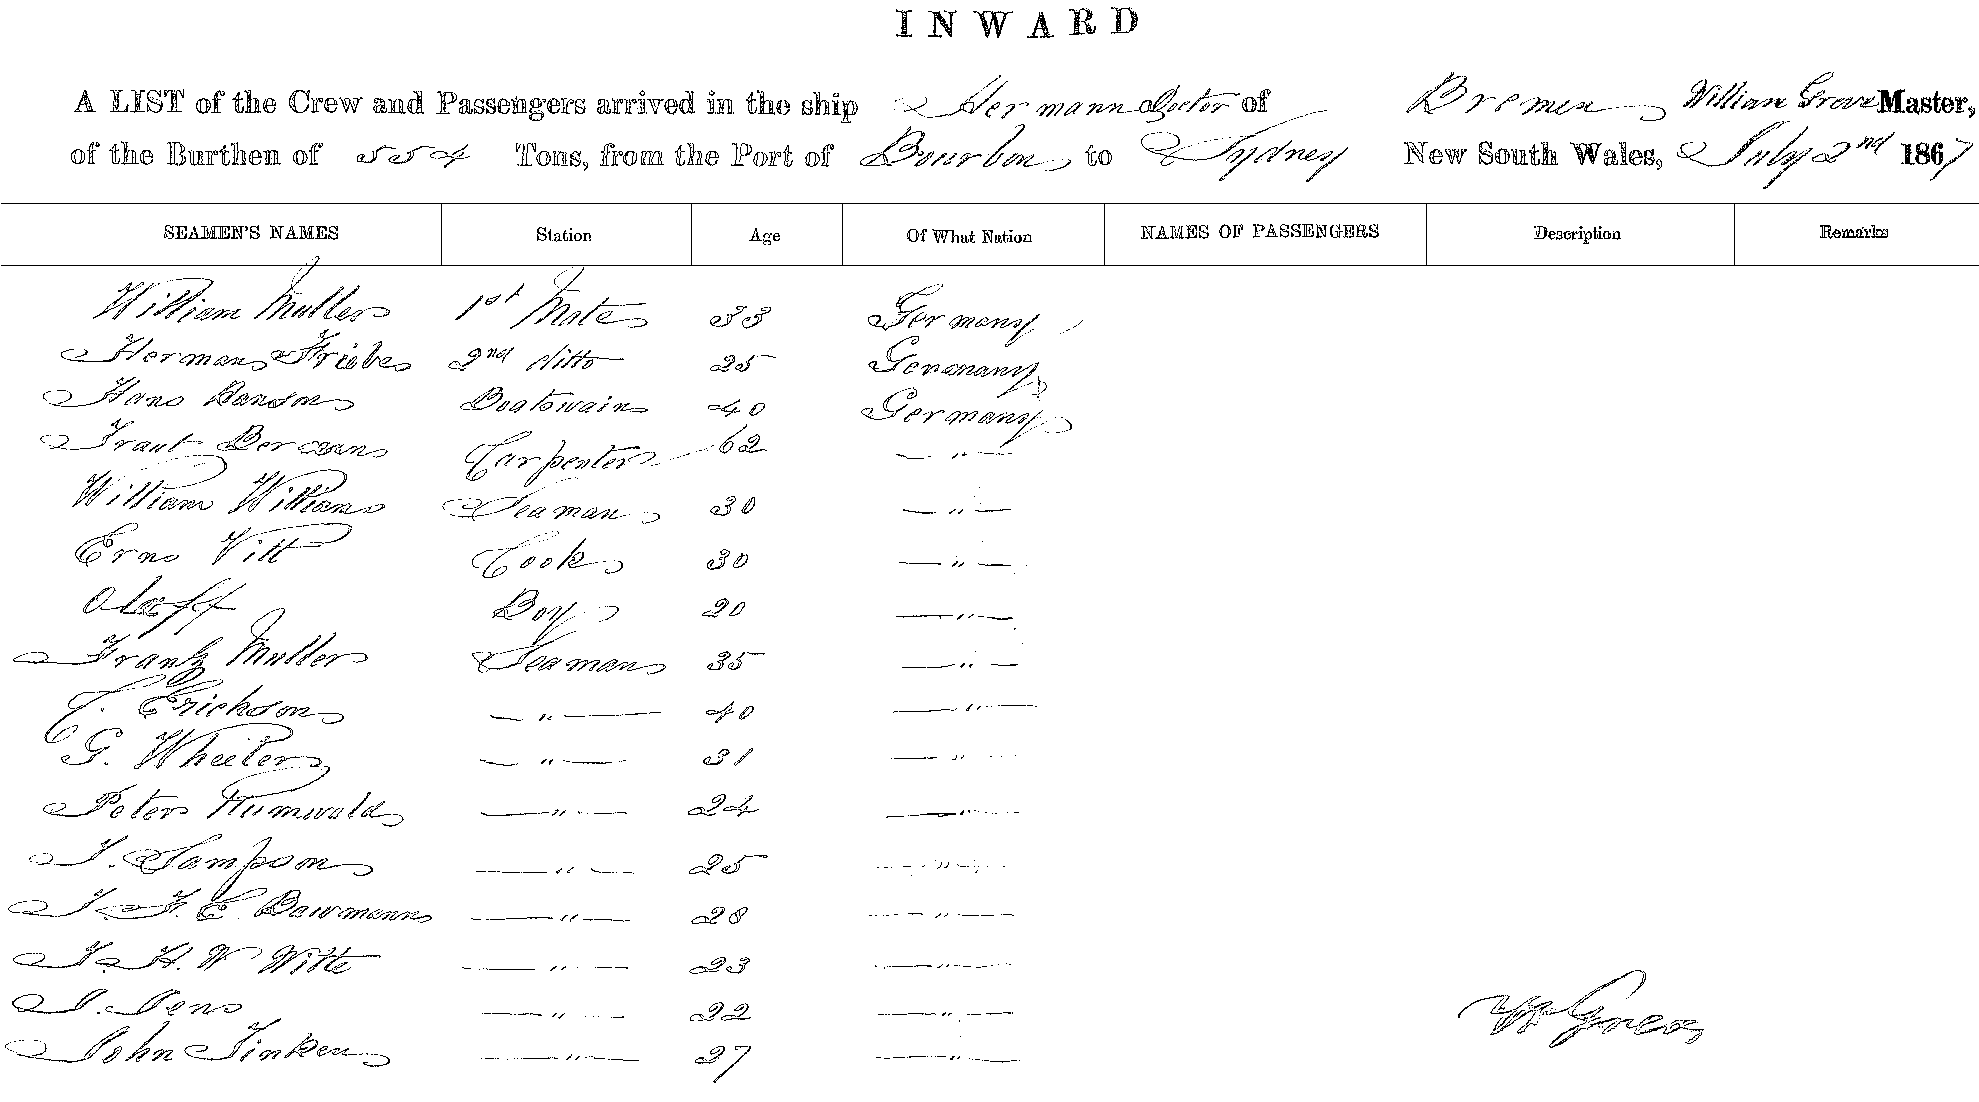 INWARD
A LIST of the Crew and Passengers arrived in the ship Hermann Doctor of Bremen William Grove Master,
of the Burthen of 554 Tons, from the Port of Bourbon to Sydney New South Wales, July 2nd 1867
SEAMEN'S NAMES Station Age Of What Nation NAMES OF PASSENGERS Description Remarks
William Muller 1st Mate 33 Germany
Herman Friebe 2nd ditto 25 Germany
Hans Hanson Boatswain 40 Germany
Berman Carpenter 62 — " —
William William Seaman 30 — " —
Erns Vitt Cook 30 — " —
Olaff Boy 20 — " —
Frank Muller Seaman 35 — " —
C. Erickson — " — 40 — " —
G. Wheeler — " — 31 — " —
Peter Humwald — " — 24 — " —
J. Sampson — " — 25 — " —
J. F. C. Bawmann — " — 28 — " —
J. H. W Witte — " — 23 — " —
J. Jens — " — 22 — " —
John Tinken — " — 27 — " —
W Grove